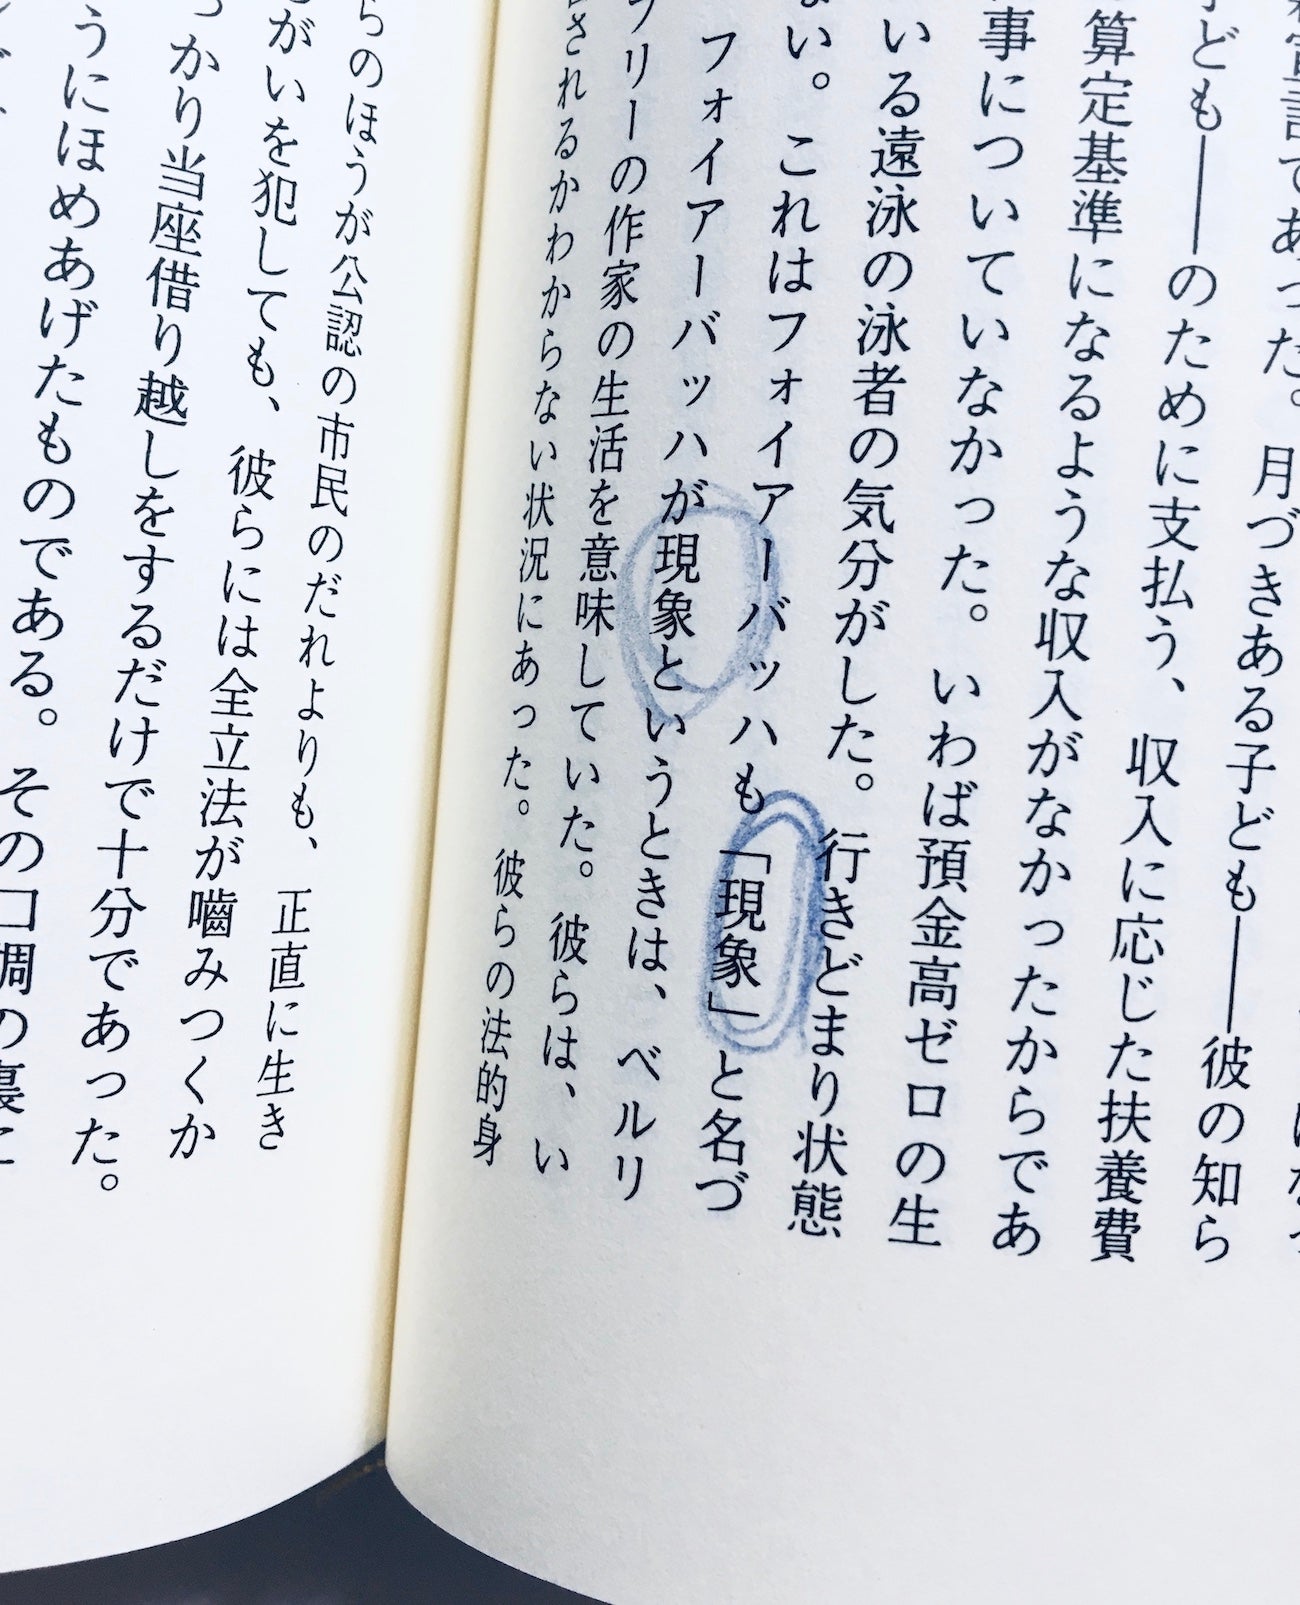 であった。月づきある子ども――彼の知ら
子ども――のために支払う、収入に応じた扶養費
算定基準になるような収入がなかったからであ
事についていなかった。いわば預金高ゼロの生
いる遠泳の泳者の気分がした。行きどまり状態
ない。これはフォイアーバッハも「現象」と名づ
フォイアーバッハが現象というときは、ベルリ
フリーの作家の生活を意味していた。彼らは、い
されるかわからない状況にあった。彼らの法的身
らのほうが公認の市民のだれよりも、正直に生き
がいを犯しても、彼らには全立法が嚙みつくか
っかり当座借り越しをするだけで十分であった。
うにほめあげたものである。その口調の裏に